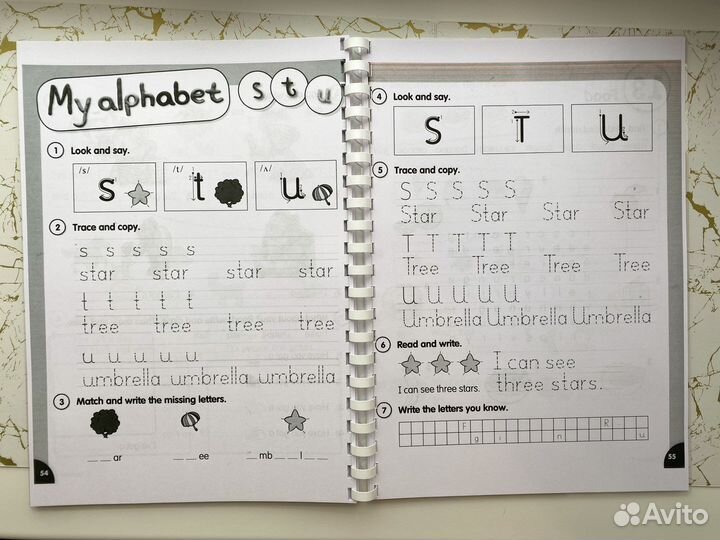 My alphabet s t u
1 Look and say.
/s/ /t/ /ʌ/
s t u
2 Trace and copy.
s s s s s
star star star star
t t t t t
tree tree tree tree
u u u u u
umbrella umbrella umbrella
3 Match and write the missing letters.
_ _ ar _ _ ee _ mb _ l _
54
4 Look and say.
S T U
5 Trace and copy.
S S S S S
Star Star Star Star
T T T T T
Tree Tree Tree Tree
U U U U U
Umbrella Umbrella Umbrella
6 Read and write.
I can see
I can see three stars. three stars.
7 Write the letters you know.
F R
g i n u
55
Avito